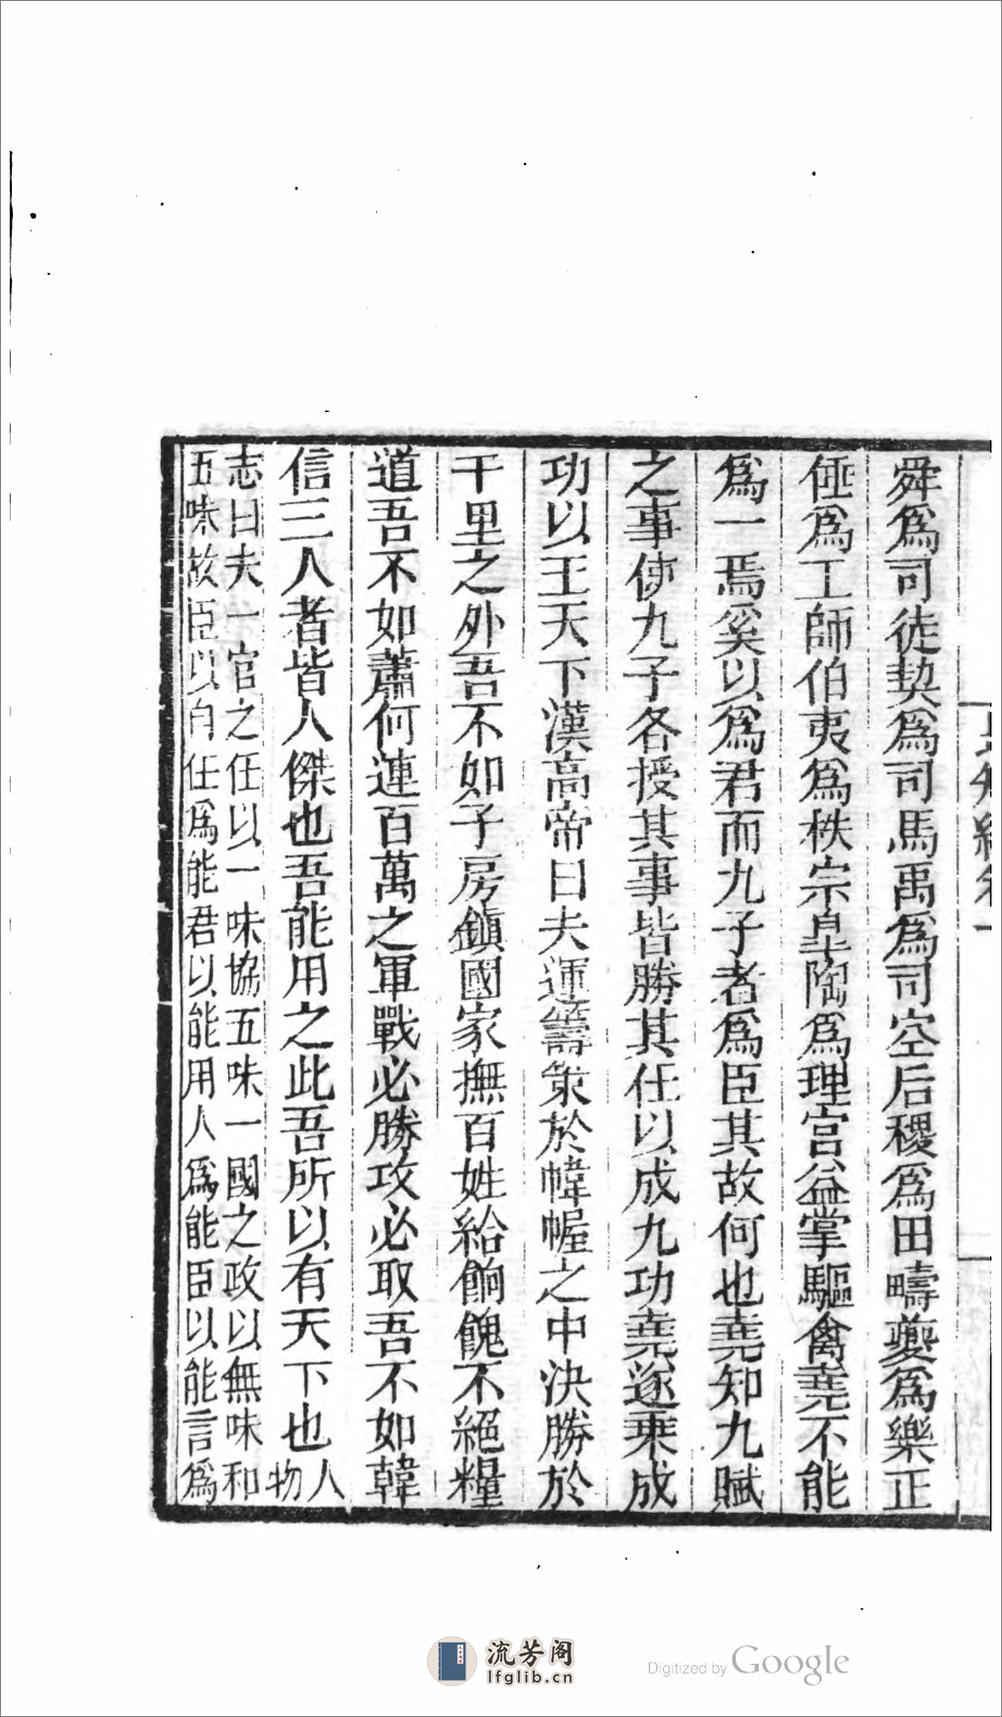 舜爲司徒契爲司馬禹爲司空后稷爲田疇夔爲樂正
倕爲工師伯夷爲秩宗皐陶爲理官益掌驅禽堯不能
爲一焉奚以爲君而九子者爲臣其故何也堯知九賦
之事使九子各授其事皆勝其任以成九功堯遂乗成
功以王天下漢高帝曰夫運籌策於幃幄之中決勝於
千里之外吾不如子房鎮國家撫百姓給餉餽不絕糧
道吾不如蕭何連百萬之軍戰必勝攻必取吾不如韓
信三人者皆人傑也吾能用之此吾所以有天下也人
物
志曰夫一官之任以一味協五味一國之政以無味和
五味故臣以自任爲能君以能用人爲能臣以能言爲
流芳阁
lfglib.cn
Digitized by Google